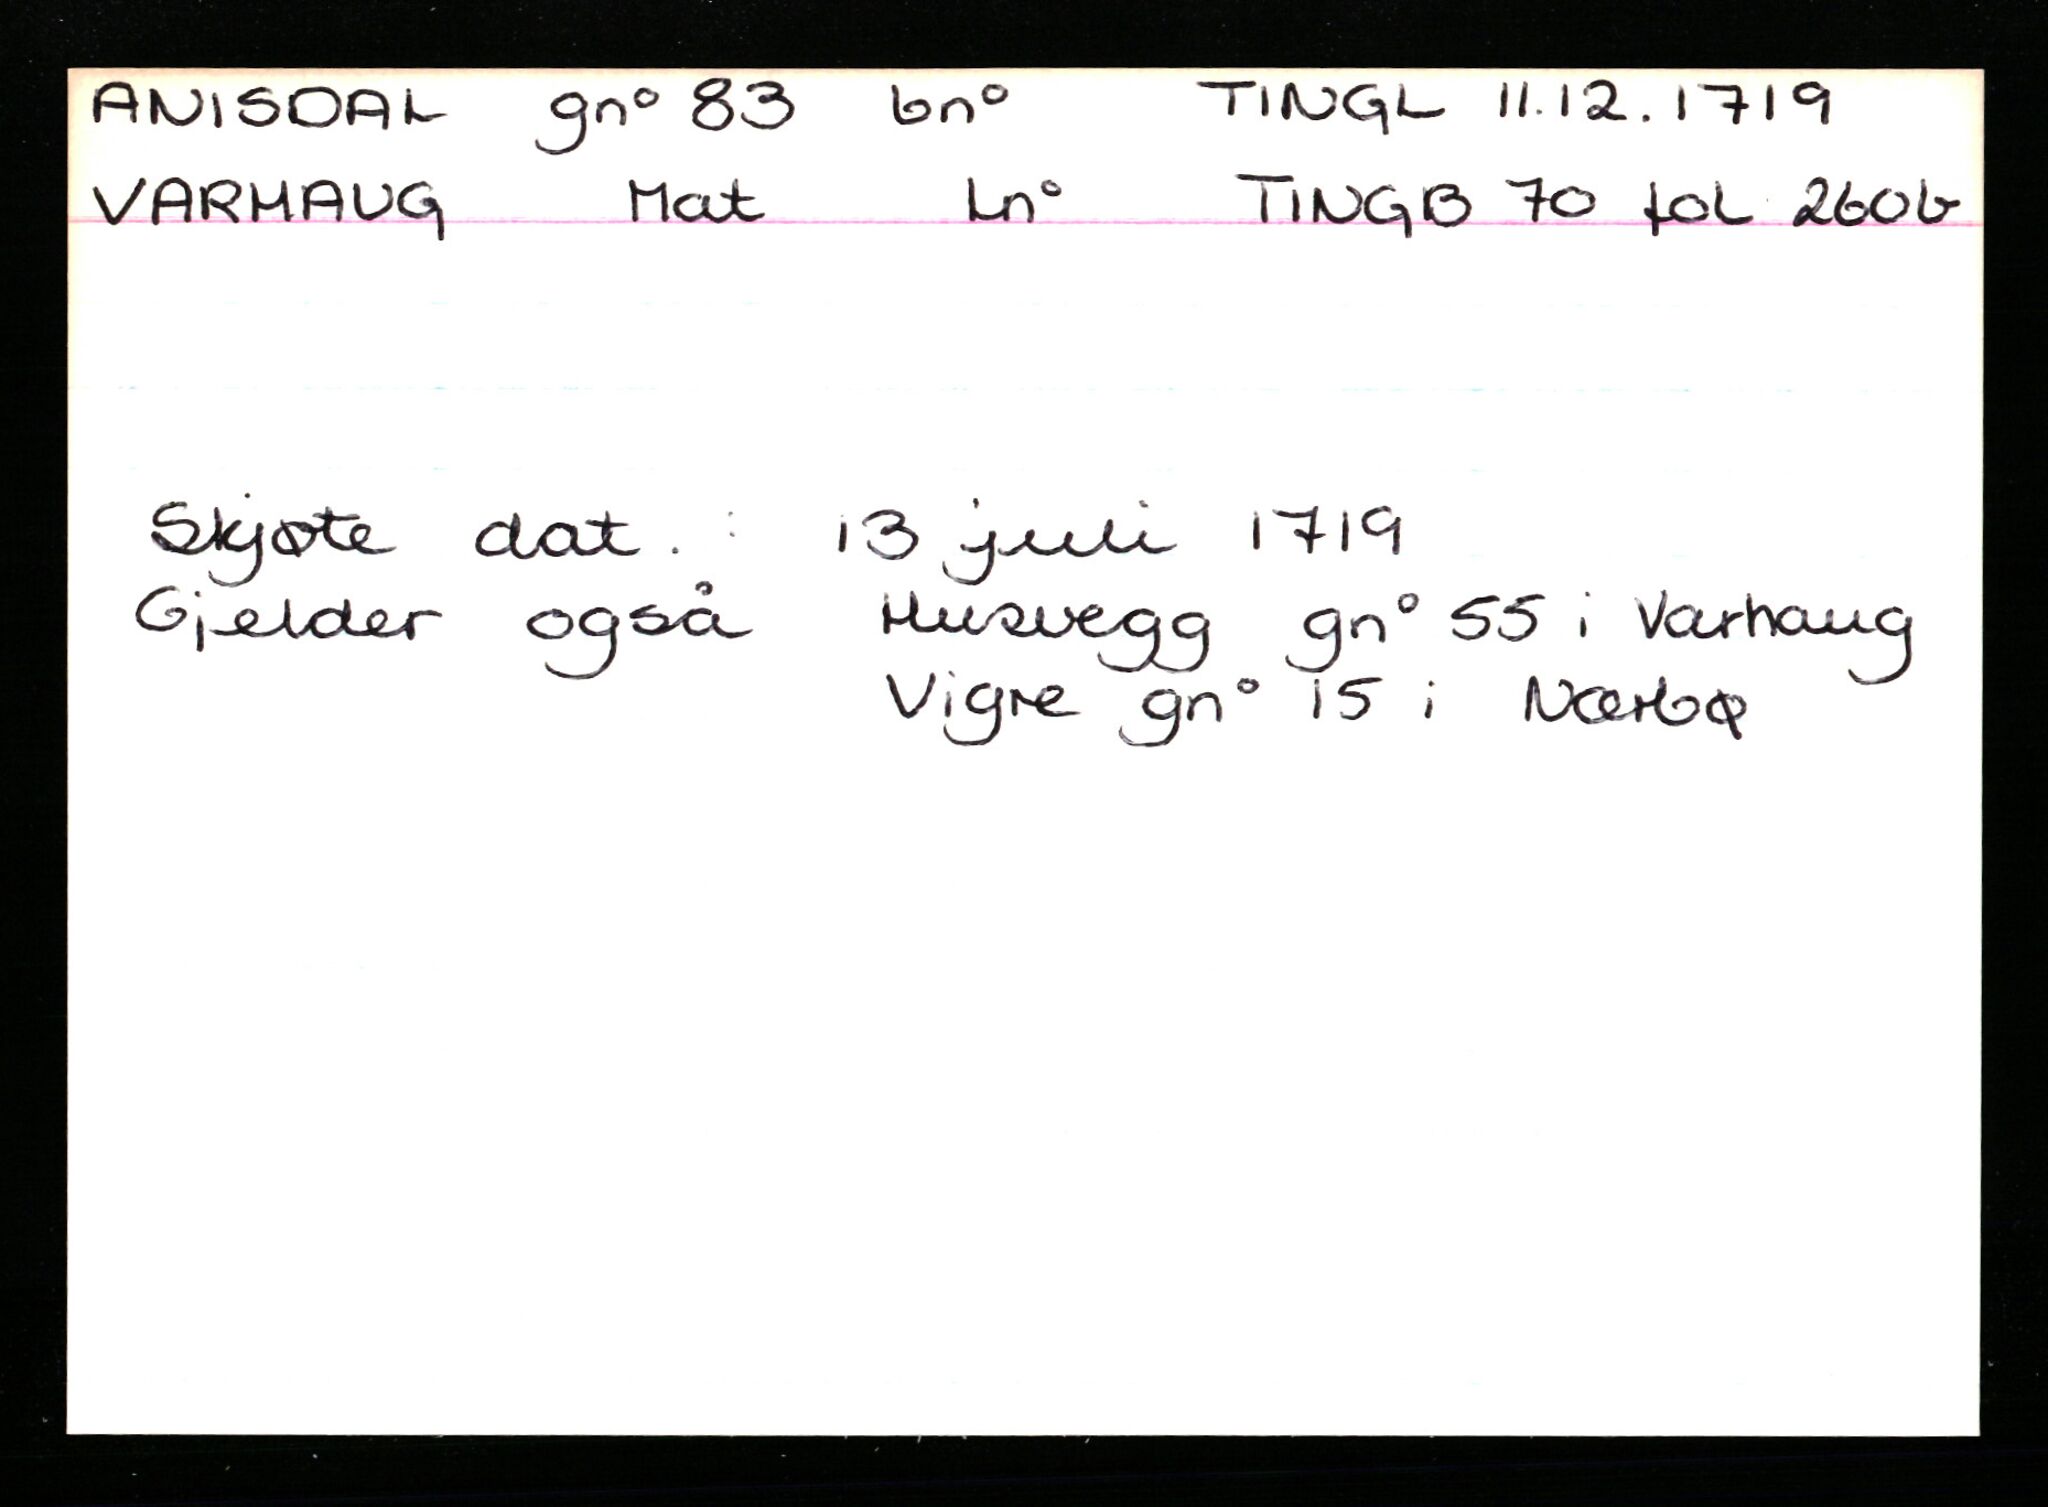 ANISDAL gn° 83 bn° TINGL 11.12.1719
VARHAUG Mat Ln° TINGB 70 fol 260b
Skjøte dat. : 13 juli 1719
Gjelder også Husvegg gn° 55 i Varhaug
Vigre gn° 15 i Nærbø